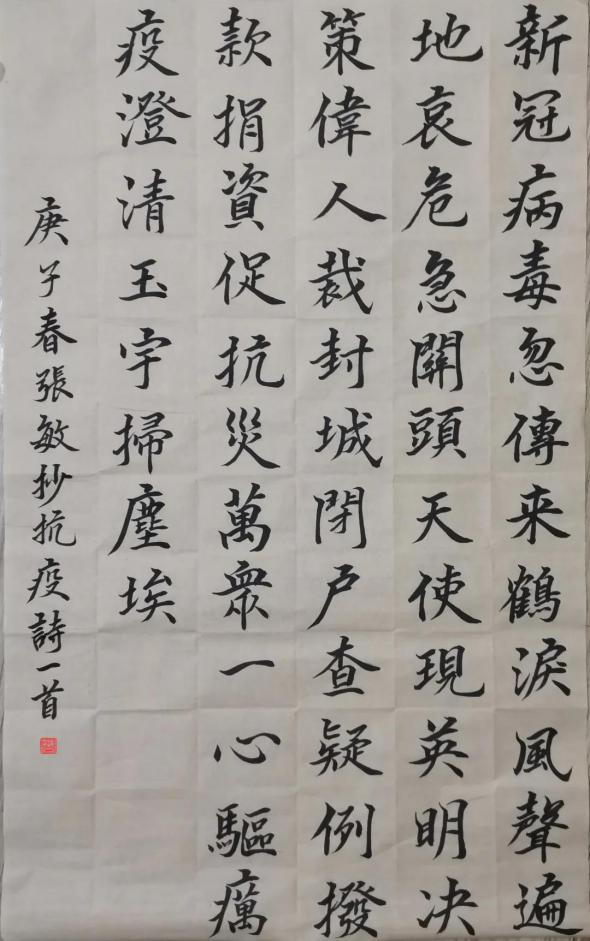 新冠病毒忽傳来鶴淚風聲遍
地哀危急關頭天使現英明决
策偉人裁封城閉户查疑例撥
款捐資促抗災萬衆一心驅癘
疫澄清玉宇掃塵埃
庚子春張敏抄抗疫詩一首